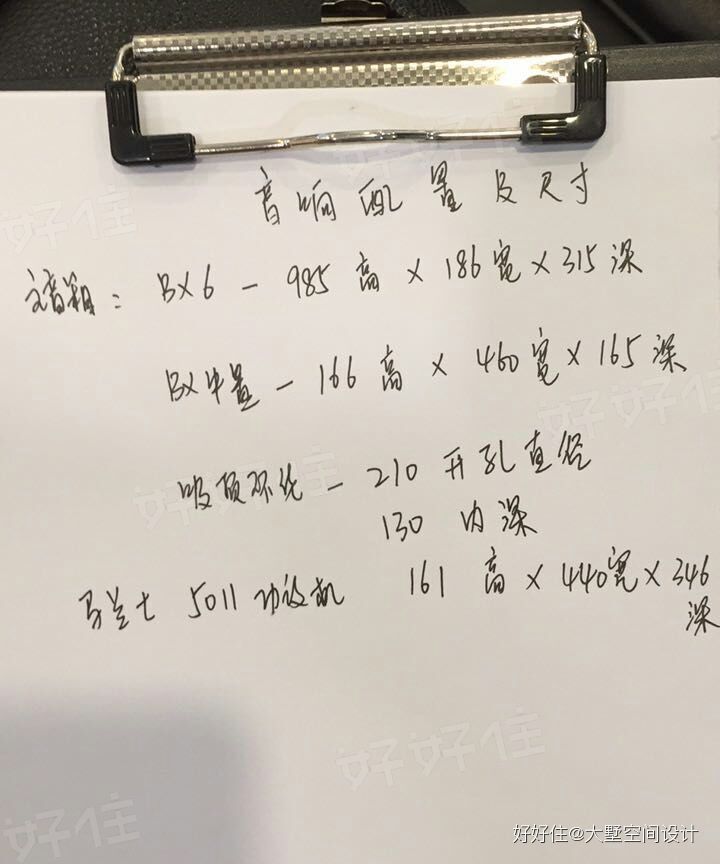 音响配置及尺寸
主音箱: BX6 - 985高 × 186宽 × 315深
BX中置 - 166高 × 460宽 × 165深
吸顶环绕 - 210 开孔直径
130 内深
马兰士 5011 功放机 161高 × 440宽 × 346
深
好好住
好好住
好好住
好好住
好好住
好好住@大墅空间设计